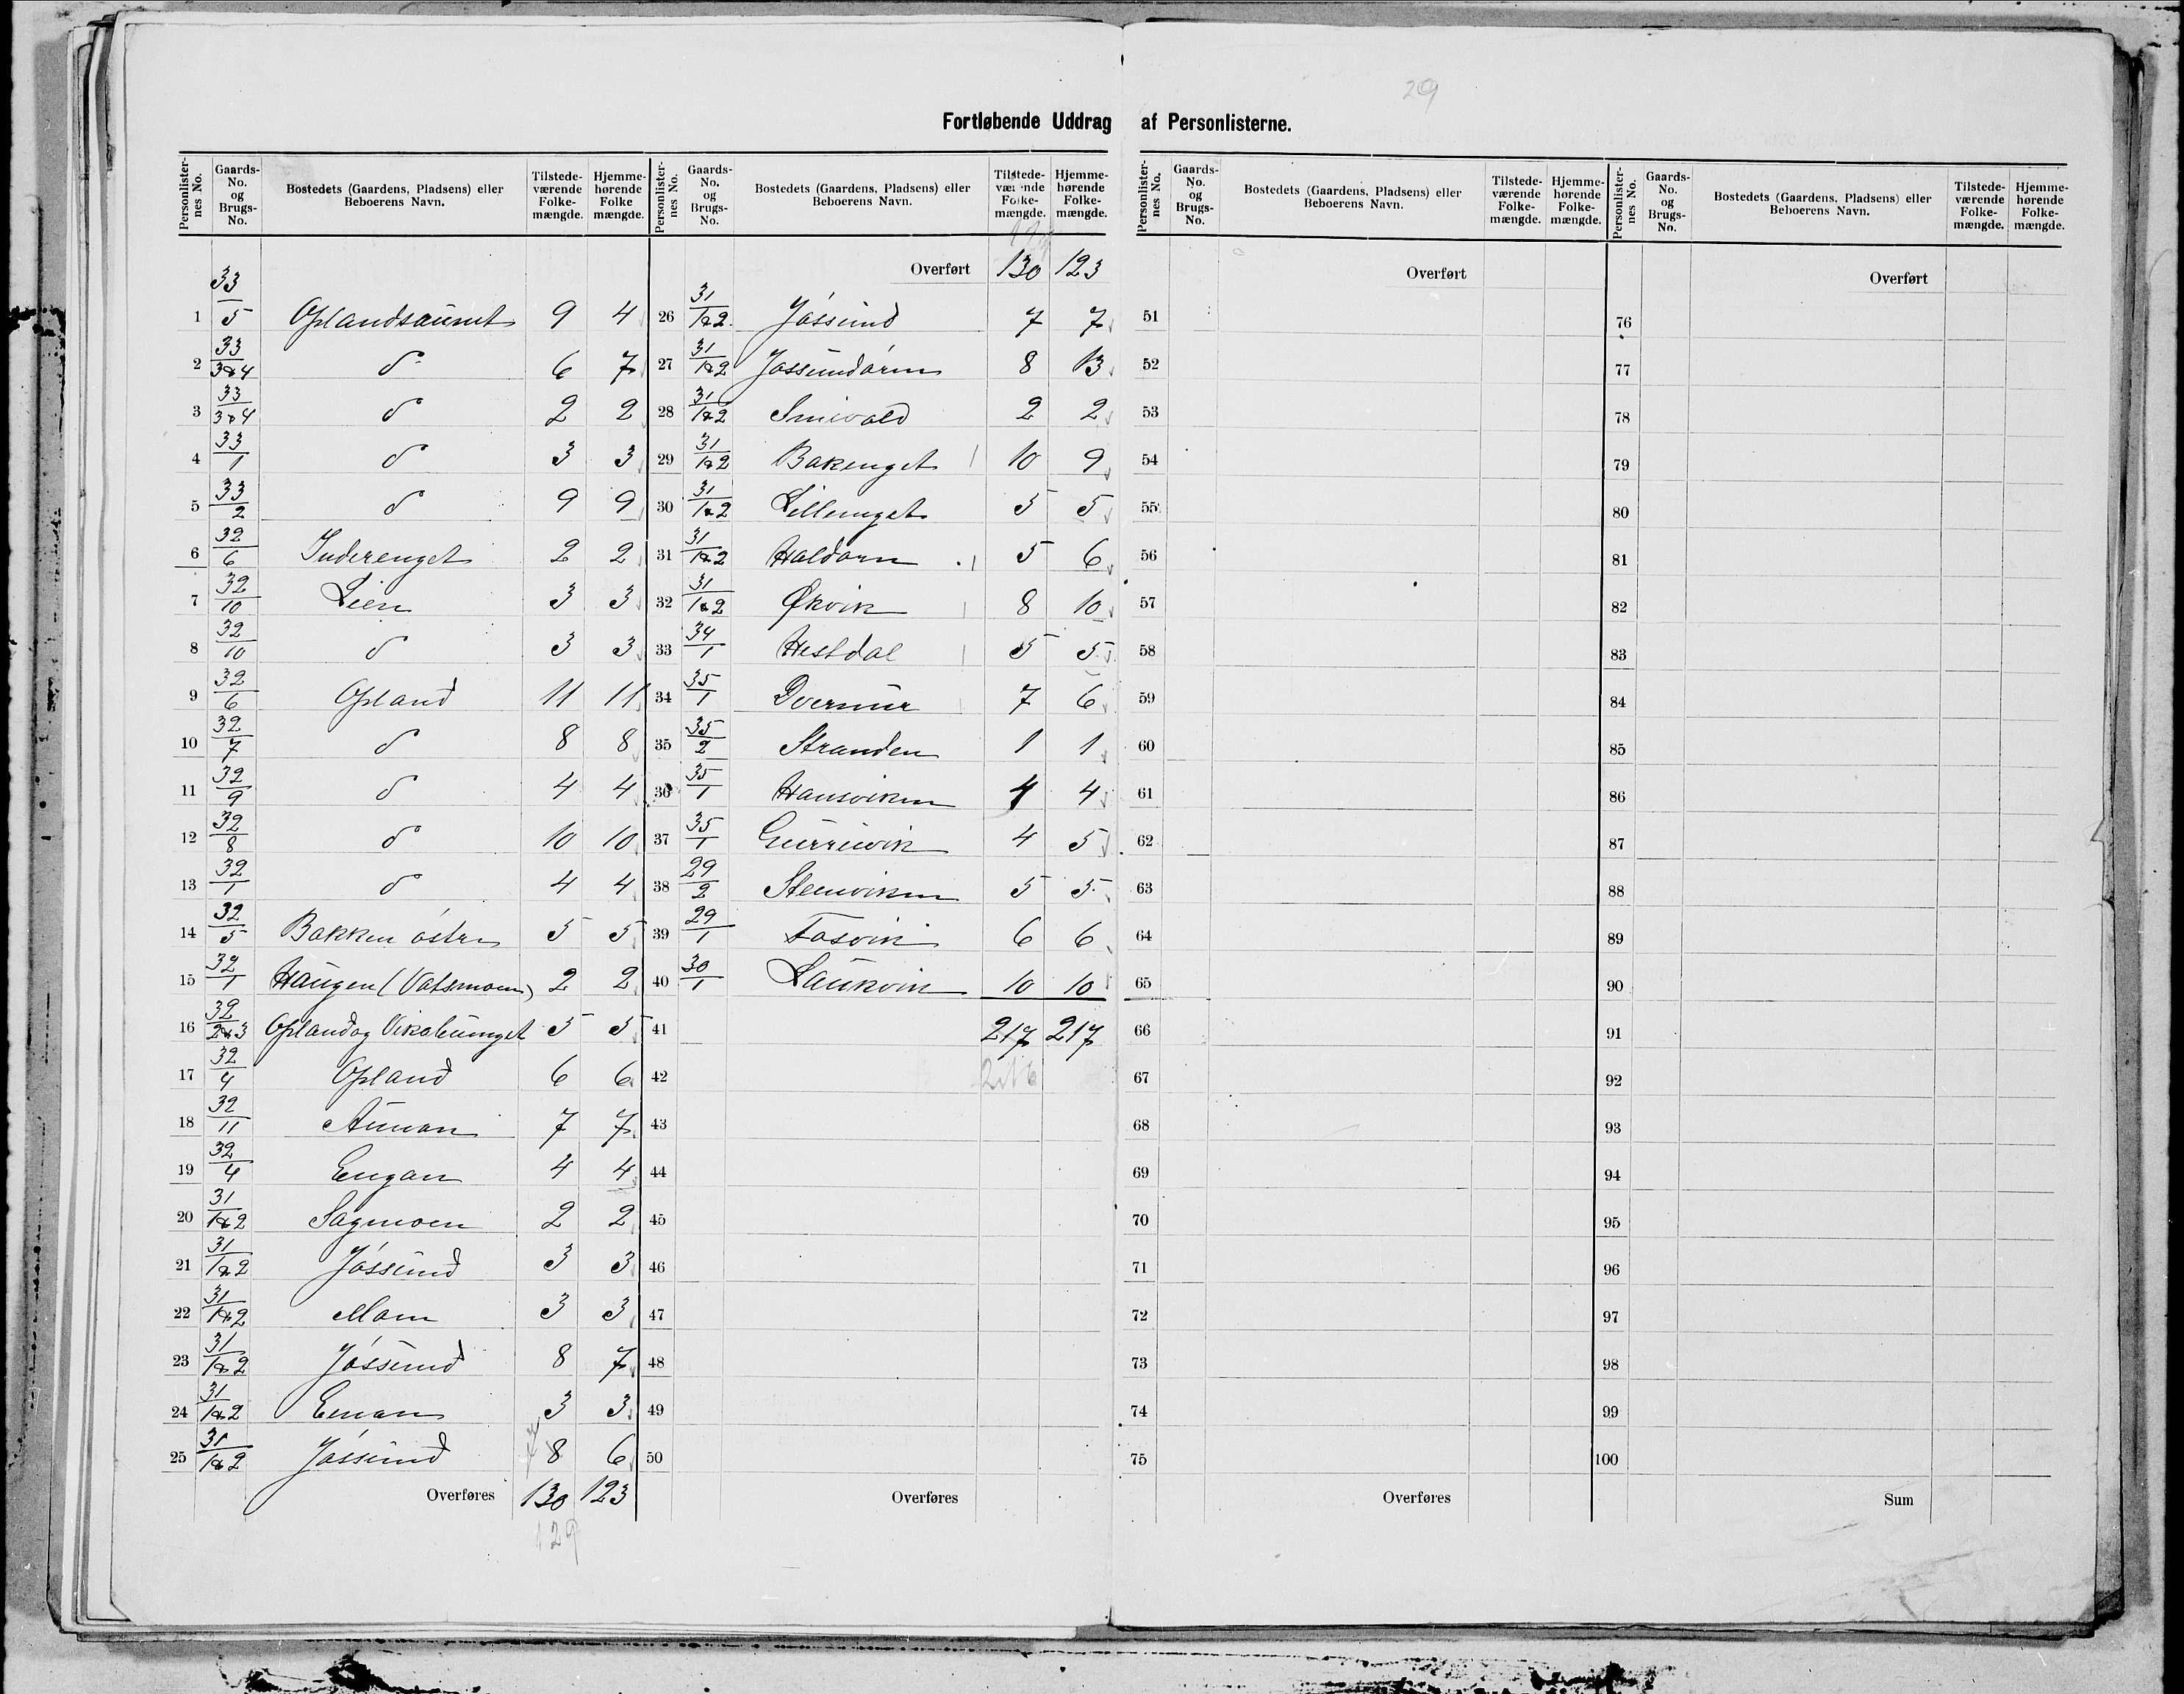 29
Fortløbende Uddrag af Personlisterne.
Personlisternes No. Gaards-No. og Brugs-No. Bostedets (Gaardens, Pladsens) eller Beboerens Navn. Tilstedeværende Folkemængde. Hjemmehørende Folkemængde.
1 33/5 Oplandsaunet 9 4
2 33/3&4 do 6 7
3 33/3&4 do 2 2
4 33/1 do 3 3
5 33/2 do 9 9
6 32/6 Inderenget 2 2
7 32/10 Lien 3 3
8 32/10 do 3 3
9 32/6 Opland 11 11
10 32/7 do 8 8
11 32/9 do 4 4
12 32/8 do 10 10
13 32/1 do 4 4
14 32/5 Bakken östre 5 5
15 32/1 Haugen (Vatsmoen) 2 2
16 32/2&3 Opland og 5 5
17 32/4 Opland 6 6
18 32/11 Aunan 7 7
19 32/4 Engan 4 4
20 31/1&2 Sagmoen 2 2
21 31/1&2 Jössund 3 3
22 31/1&2 Moen 3 3
23 31/1&2 Jössund 8 7
24 31/1&2 3 3
25 31/1&2 Jössund 8 6
Overføres 130 123
129
Personlisternes No. Gaards-No. og Brugs-No. Bostedets (Gaardens, Pladsens) eller Beboerens Navn. Tilstedeværende Folkemængde. Hjemmehørende Folkemængde.
Overført 130 123
26 31/1&2 Jössund 7 7
27 31/1&2 8 13
28 31/1&2 2 2
29 31/1&2 Bakenget 10 9
30 31/1&2 Lillenget 5 5
31 31/1&2 5 6
32 31/1&2 Økvik 8 10
33 34/1 Hestdal 5 5
34 35/1 7 6
35 35/2 Stranden 1 1
36 35/1 Hansviken 4 4
37 35/1 4 5
38 29/2 Stenviken 5 5
39 29/1 Fosvik 6 6
40 30/1 Laukvik 10 10
41 217 217
42 216
43
44
45
46
47
48
49
50
Overføres
Personlisternes No. Gaards-No. og Brugs-No. Bostedets (Gaardens, Pladsens) eller Beboerens Navn. Tilstedeværende Folkemængde. Hjemmehørende Folkemængde.
Overført
51
52
53
54
55
56
57
58
59
60
61
62
63
64
65
66
67
68
69
70
71
72
73
74
75
Overføres
Personlisternes No. Gaards-No. og Brugs-No. Bostedets (Gaardens, Pladsens) eller Beboerens Navn. Tilstedeværende Folkemængde. Hjemmehørende Folkemængde.
Overført
76
77
78
79
80
81
82
83
84
85
86
87
88
89
90
91
92
93
94
95
96
97
98
99
100
Sum